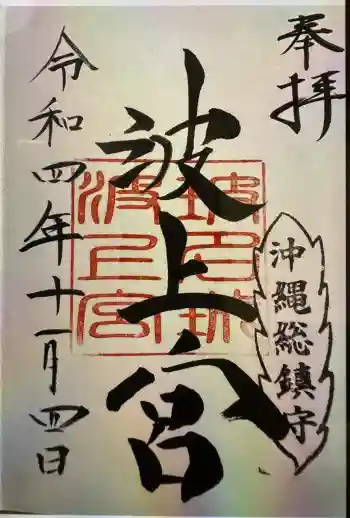 奉拝
沖縄総鎮守
波上宮
波上宮
令和四年十一月四日